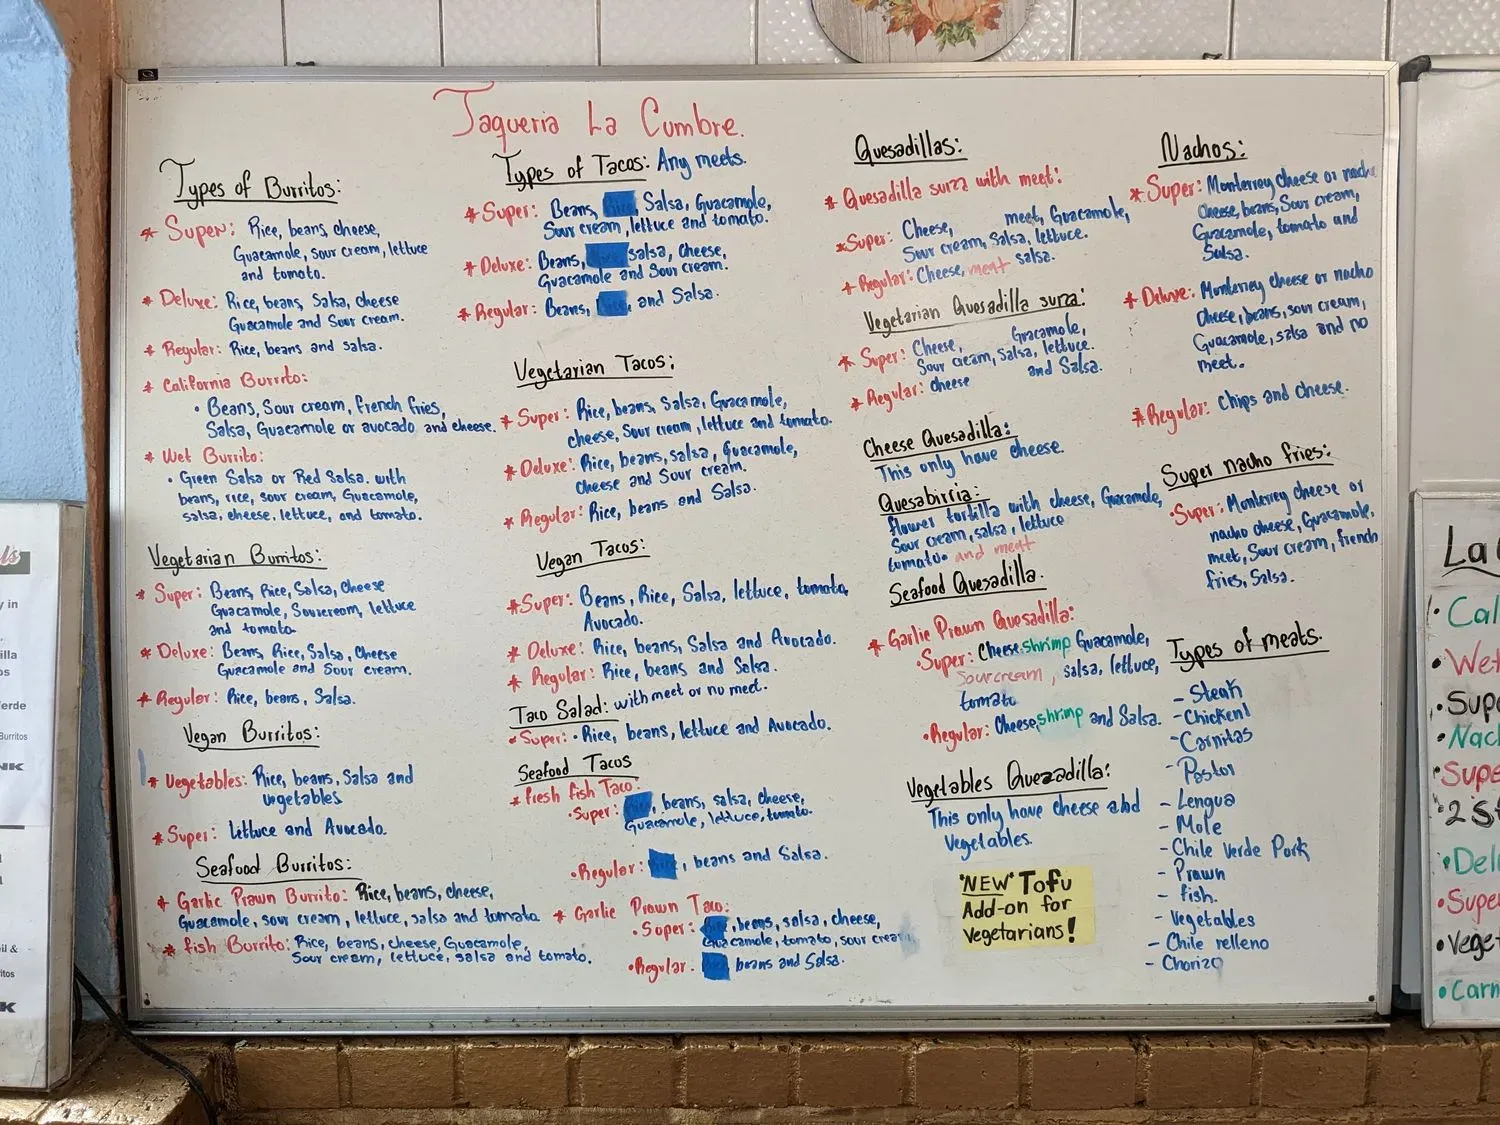 Taqueria La Cumbre.
Types of Burritos:
* Super: Rice, beans, cheese,
Guacamole, sour cream, lettuce
and tomato.
* Deluxe: Rice, beans, Salsa, cheese
Guacamole and Sour cream.
* Regular: Rice, beans and salsa.
* California Burrito:
• Beans, Sour cream, french fries,
Salsa, Guacamole or avocado and cheese.
* Wet Burrito:
• Green Salsa or Red Salsa. with
beans, rice, sour cream, Guacamole,
salsa, cheese, lettuce, and tomato.
Vegetarian Burritos:
* Super: Beans, Rice, Salsa, Cheese
Guacamole, Sourcream, lettuce
and tomato.
* Deluxe: Beans, Rice, Salsa, Cheese
Guacamole and Sour cream.
* Regular: Rice, beans, Salsa.
Vegan Burritos:
* Vegetables: Rice, beans, Salsa and
vegetables
* Super: lettuce and Avocado.
Seafood Burritos:
* Garlic Prawn Burrito: Rice, beans, cheese,
Guacamole, sour cream, lettuce, salsa and tomato.
* fish Burrito: Rice, beans, cheese, Guacamole,
Sour cream, lettuce, salsa and tomato.
Types of Tacos: Any meets.
* Super: Beans, Salsa, Guacamole,
Sour cream, lettuce and tomato.
* Deluxe: Beans, salsa, cheese,
Guacamole and Sour cream.
* Regular: Beans, and Salsa.
Vegetarian Tacos:
* Super: Rice, beans, Salsa, Guacamole,
cheese, Sour cream, lettuce and tomato.
* Deluxe: Rice, beans, salsa, guacamole,
cheese and Sour cream.
* Regular: Rice, beans and Salsa.
Vegan Tacos:
* Super: Beans, Rice, Salsa, lettuce, tomato,
Avocado.
* Deluxe: Rice, beans, Salsa and Avocado.
* Regular: Rice, beans and Salsa.
Taco Salad: with meet or no meet.
• Super: • Rice, beans, lettuce and Avocado.
Seafood Tacos
* fresh fish Taco:
• Super: , beans, salsa, cheese,
Guacamole, lettuce, tomato.
• Regular: , beans and Salsa.
* Garlic Prawn Taco:
• Super: , beans, salsa, cheese,
Guacamole, tomato, sour cream
• Regular. beans and Salsa.
Quesadillas:
* Quesadilla surza with meet:
* Super: Cheese, meet, Guacamole,
Sour cream, Salsa, lettuce.
* Regular: Cheese, meat salsa.
Vegetarian Quesadilla surza:
* Super: Cheese, Guacamole,
Sour cream, Salsa, lettuce.
* Regular: cheese and Salsa.
Cheese Quesadilla:
This only have cheese.
Quesabirria:
flower tortilla with cheese, Guacamole,
Sour cream, salsa, lettuce
tomato. and meat
Seafood Quesadilla.
* Garlic Prawn Quesadilla:
• Super: Cheese, shrimp Guacamole,
Sour cream, salsa, lettuce,
tomato
• Regular: Cheese, shrimp and Salsa.
Vegetables Quezadilla:
This only have cheese and
Vegetables.
"NEW" Tofu
Add-on for
vegetarians!
Nachos:
* Super: Monterrey cheese or nacho
cheese, beans, Sour cream,
Guacamole, tomato and
Salsa.
* Deluxe: Monterrey cheese or nacho
cheese, beans, sour cream,
Guacamole, salsa and no
meet.
* Regular: chips and cheese.
Super nacho fries:
• Super: Monterrey cheese or
nacho cheese, Guacamole,
meet, Sour cream, french
fries, Salsa.
Types of meats.
- Steak
- Chicken
- Carnitas
- Pastor
- Lengua
- Mole
- Chile verde Pork
- Prawn
- fish.
- Vegetables
- Chile relleno
- Chorizo
La
• Cal
• Wet
• Supe
• Nach
• Supe
• 2 S
• Del
• Supe
• Veget
• Carn
y in
illa
os
erde
Burritos
NK
il &
itos
K